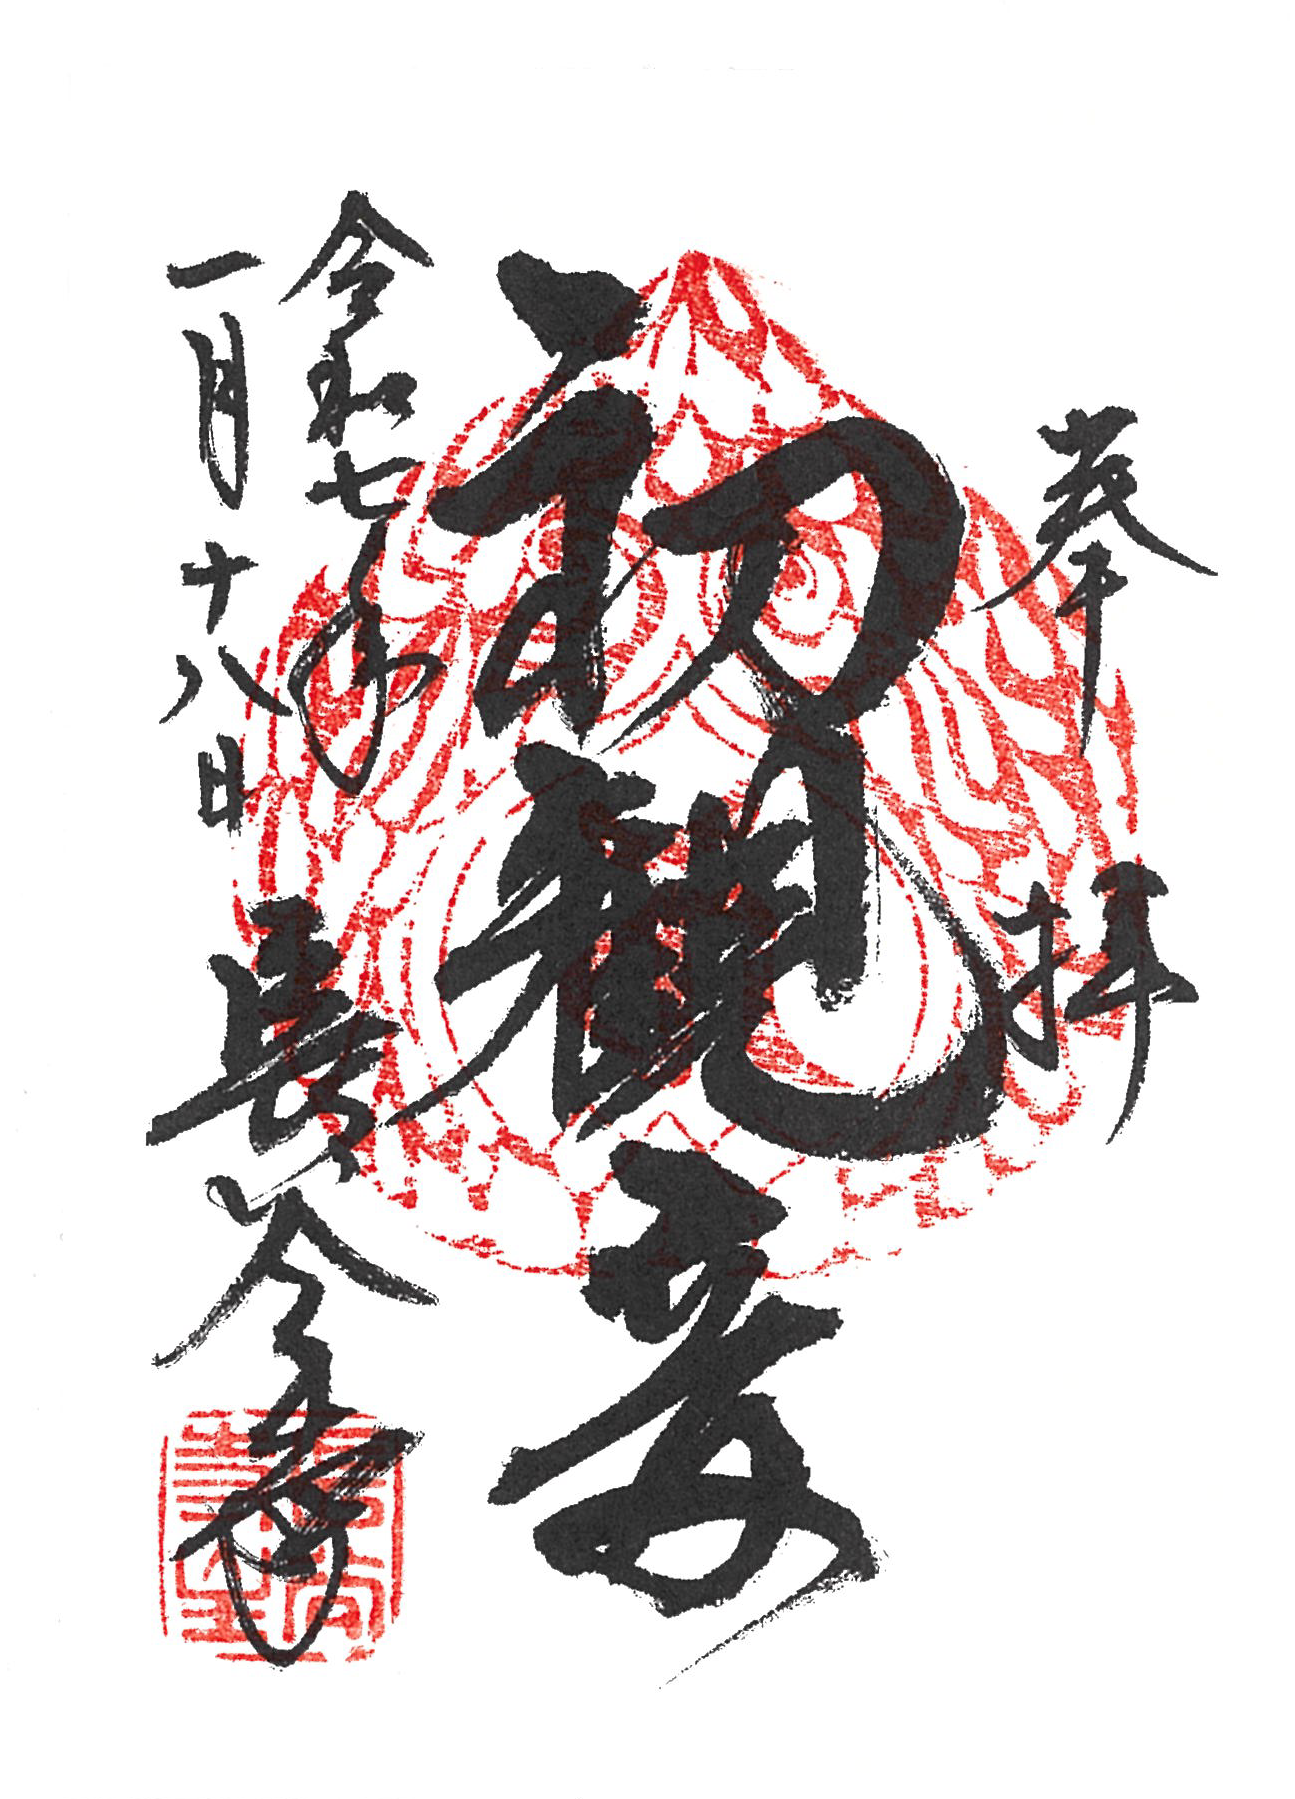 奉拝
初観音
令和七年
一月十八日
長全寺